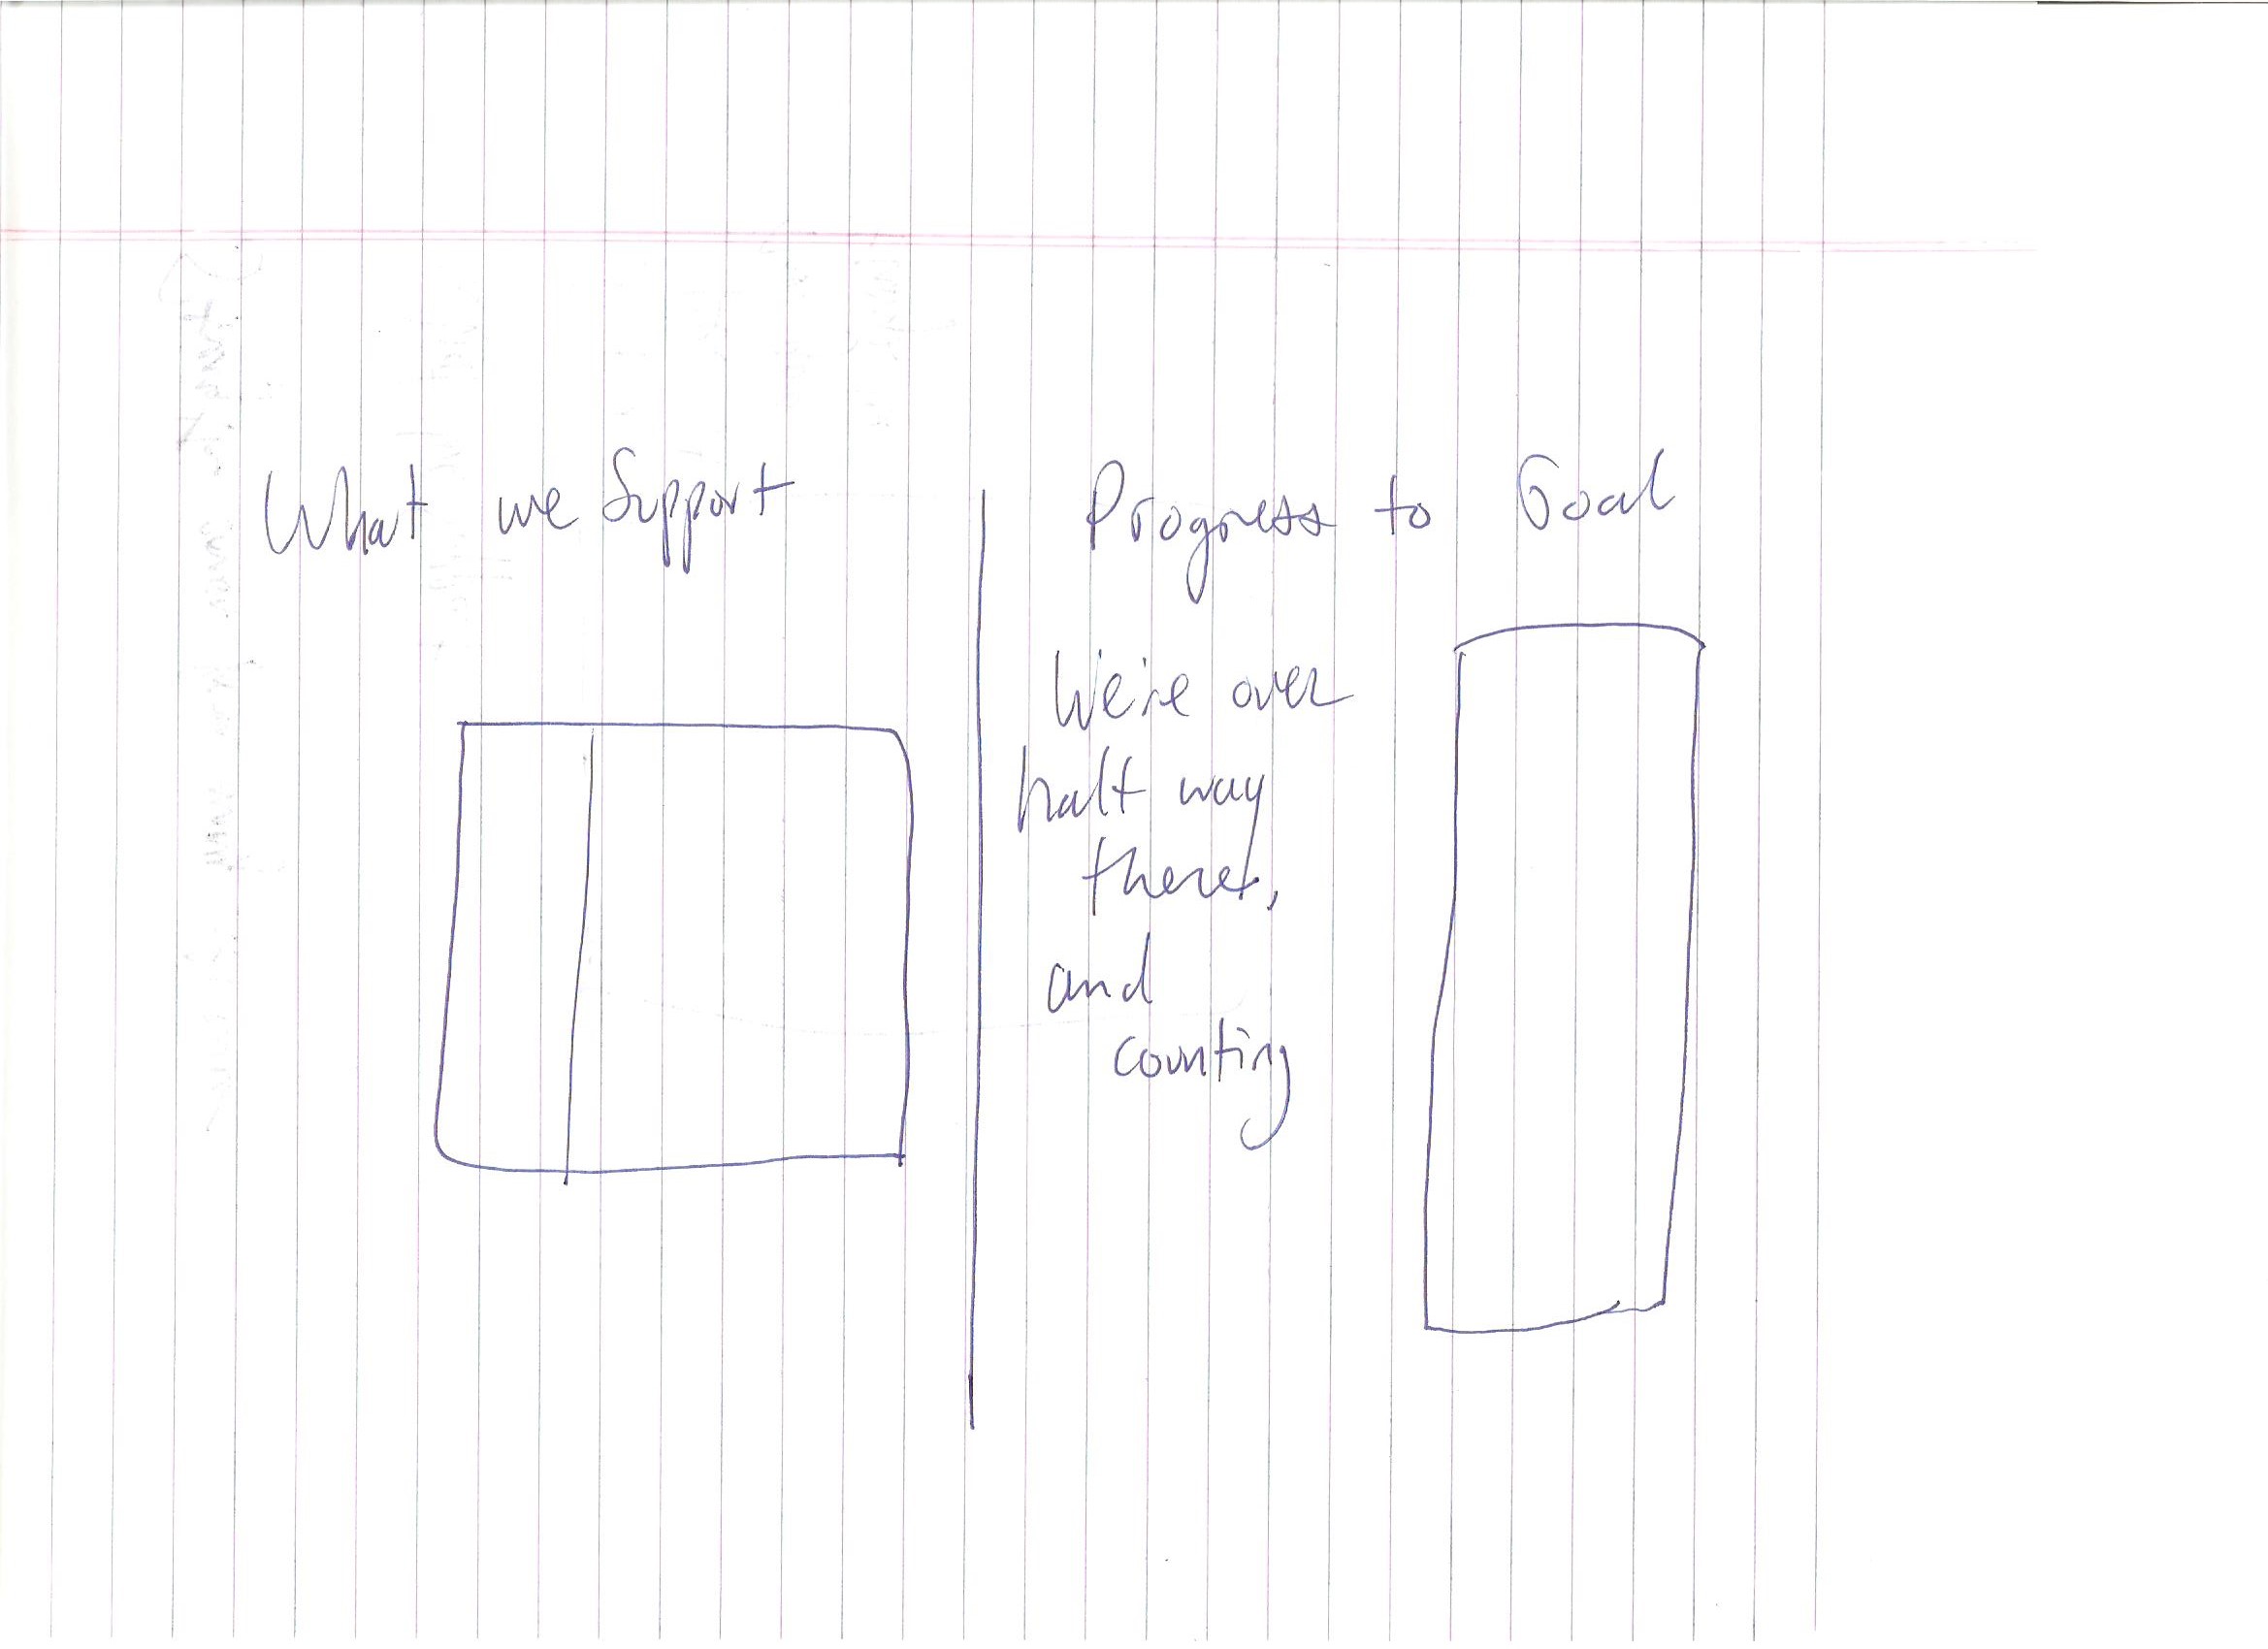 What we Support
Progress to Goal
We're over
half way
there,
and
counting